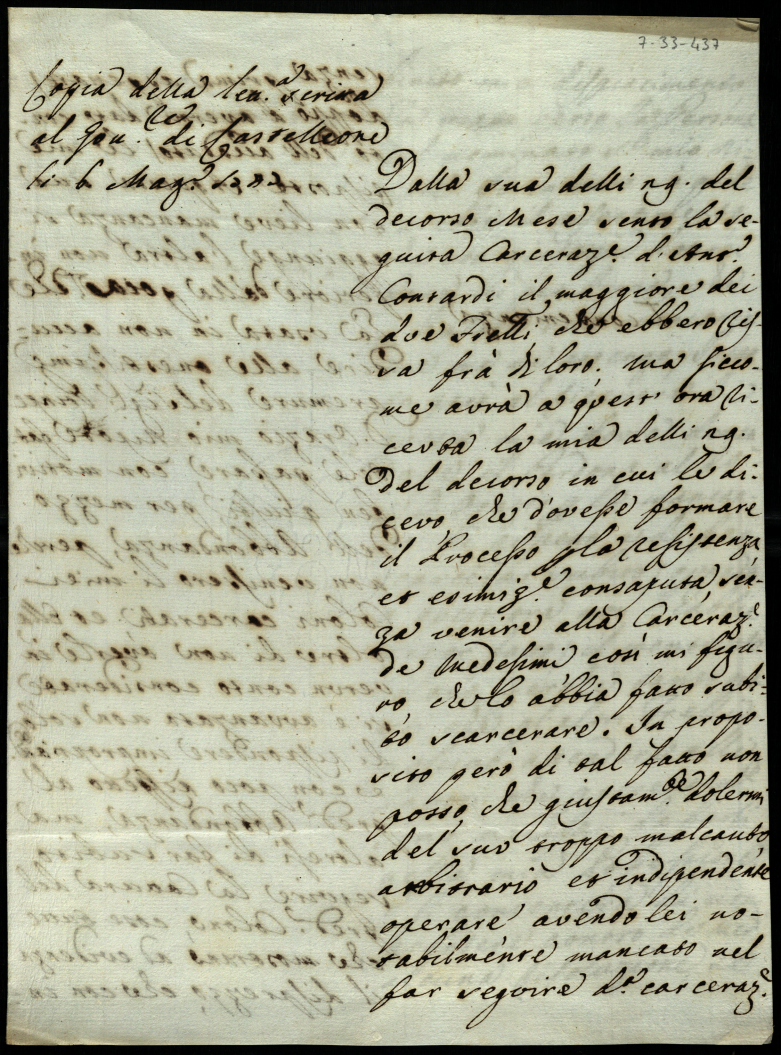 7-33-437
Copia della lett.ª scritta
al Gov.re di Castelleone
li 6 Mag.º
Dalla sua delli 29. del
decorso Mese sento la se-
guita Carceraz.e d'Ant.º
Contardi il maggiore dei
due Fretti, che ebbero ris-
sa frà di loro. Ma sicco-
me avrà a quest'ora ri-
cevuta la mia delli 29.
del decorso in cui le di-
cevo, che dovesse formare
il Processo p la resistenza
et esimiz.e consaputa sen-
za venire alla Carceraz.e
de Medesimi così mi figu-
ro che lo abbia fatto subi-
to scarcerare. In propo-
sito però di tal fatto non
posso, che giustam.te dolermi
del suo troppo malcauto
arbitrario et indipendente
operare avendo lei no-
tabilmente mancato nel
far seguire d.ª carceraz.e